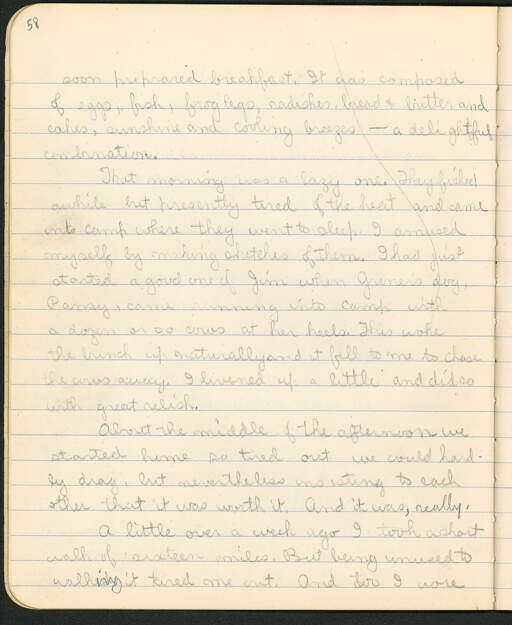 58
soon preprared breakfast. It was composed
of eggs, fish, frog legs, radishes, bread & butter and
cakes, sunshine and cooling breezes — a delightful
combination.
That morning was a lazy one. They fished
awhile but presently tired of the heat and came
into camp where they went to sleep. I amused
myself by making sketches of them. I had just
started a good one of Jim when Greiners dog,
Pansy, came running into camp with
a dozen or so cows at her heels. This woke
the bunch up naturally and it fell to me to chase
the cows away. I livened up a little and did so
with great relish.
About the middle of the afternoon we
started home so tired out we could hard-
ly drag, but nevertheless insisting to each
other that it was worth it. And it was, really.
A little over a week ago I took a short
walk of sixteen miles. But being unused to
walking it tired me out. And too I wore